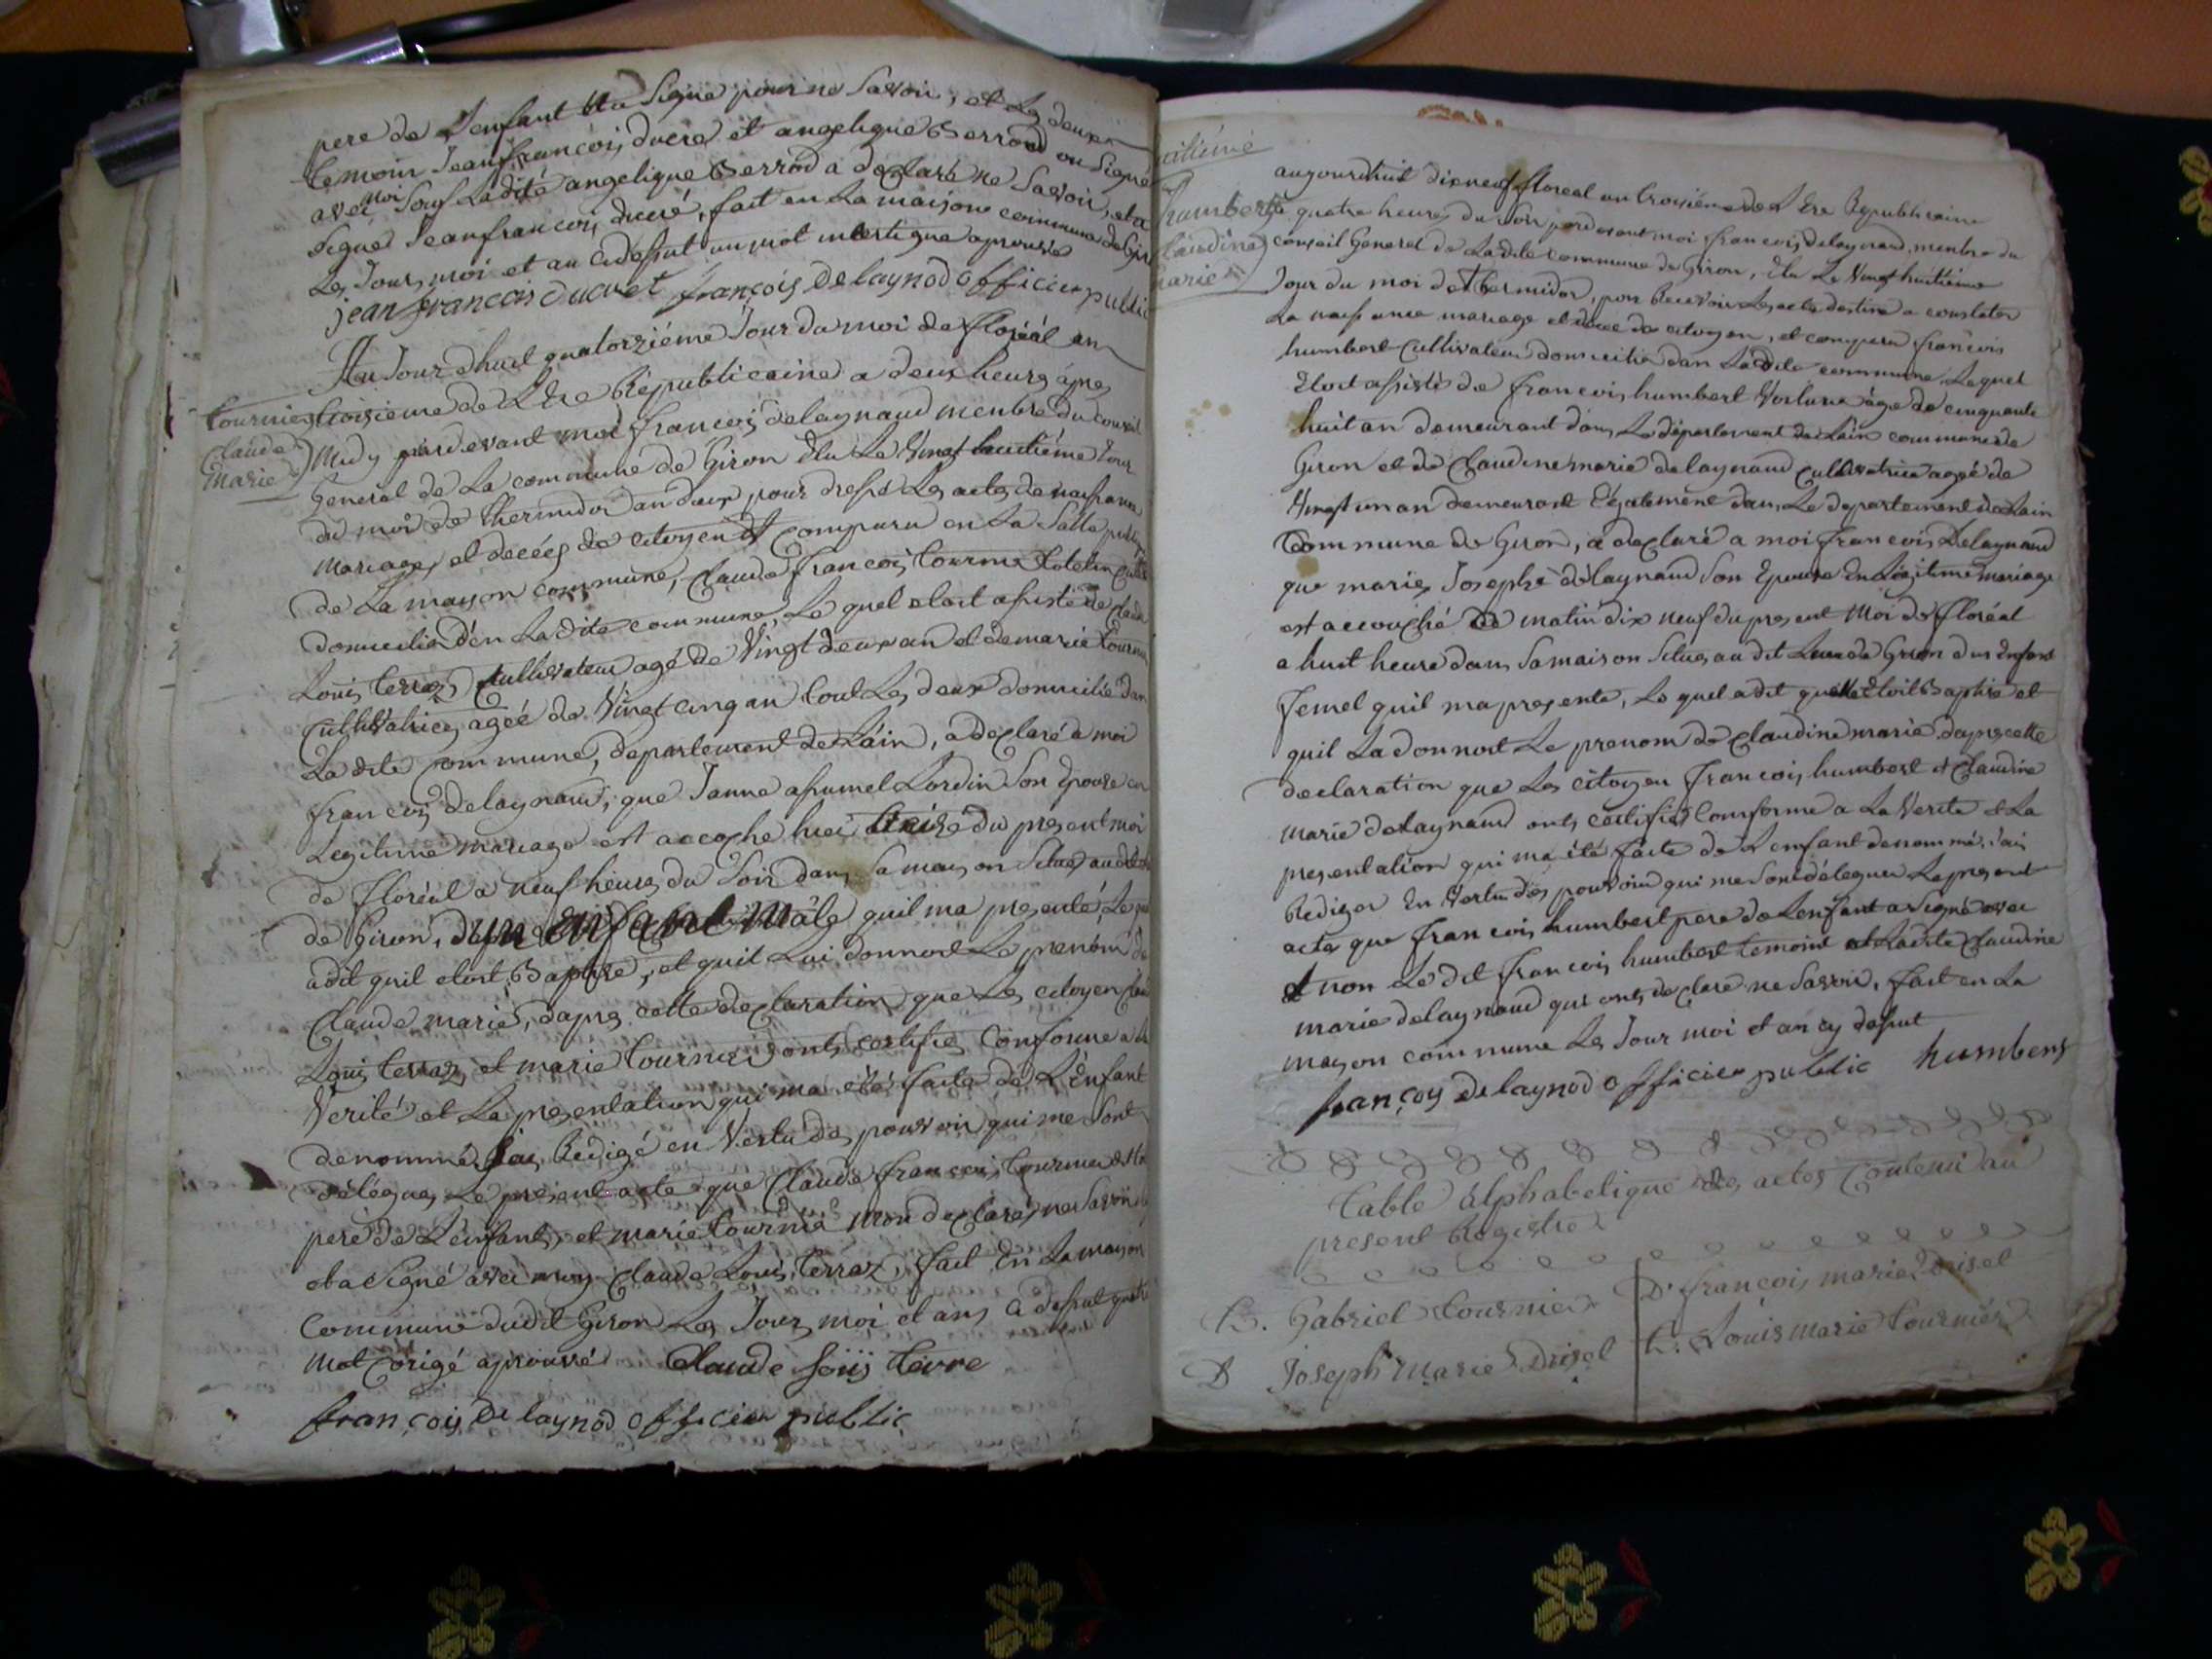 pere de Lenfant Na Signe pour ne Savoir, et Les deux
temoin Jeanfrançois ducre et angelique Berrod on Signé
avec moi Souf Ladite angelique Berrod a déclaré ne Savoir, et a
Signé Jeanfrancois ducré, fait en La maison commune de
Les Jour, moi et an cidesut un mot interligne aprouvé
jean françois ducret françois Delaynod officier public
Au Jourdhuit quatorziéme Jour du moi de floréal an
troisieme de LEre Républicaine a deux heure apres
tournier
Claude
Marie
Midy pardevant moi françois delaynaud menbre du Conseil
General de La commune de Giron Elu Le Vingt huitiéme Jour
du moi de thermidor an deux pour dresé Les actes de naisance
mariage, et decées de citoyen et comparu en La Salle
de La mayson commune, Claude françois tournie
domicilié den Ladite commune, Le quel etoit asisté de
Louis terraz Cultivateur agé de Vingt deux an et de marie
Cultivatrice agée de Vingt cinq an tout Les deux domicilié dan
La dite Commune, departement de Láin, a déclaré a moi
françois delaynaud, que Janne Lordin Son Epouse en
Legitime mariage est accoche hier treize du present moi
de floréal a neuf heures du Soir dans Sa mayson Situe
de Giron, dun Enfant Mâle quil ma presenté Le
adit quil etoit Baptise, et quil Lui donnoit Le prenom de
Claude marie, dapres cette declaration que Les citoyen
Louis terraz et marie tournier onts certifies Conforme a la
Verité et La presentation qui ma eté faite de LEnfant
denommé Jai Redigé en Vertu des pouvoir qui me Sont
délegues, Le present acte que Claude francois tournier
pere de Lenfant, et marie tournie mon declaré ne Savoir
et a Signé avec moy Claude Louis terraz, fait En La mayson
Commune dudit Giron Les Jour, moi et ans Cidesut quatre
Mot Corigé aprouvé Claude Loüis tevre
françois Delaynod officier public
humbert
Claudine
marie
aujourdhuit dixneuf floreal an troisiéme de L Ere Republicaine
a quatre heures du Soir pardevant moi francois delaynaud, menbre du
conseil General de Ladite commune de Giron, Elu Le Vingt huitiéme
Jour du moi de thermidor, pour Recevoir Les acte destiné a constater
La naisance mariage et décé de citoyen, et comparu francois
humbert Cultivateur domicilié dan Ladite commune Lequel
Etoit asisté de francois humbert agé de cinquante
huit an demeurant dans Le département de Láin commune de
Giron et de Claudine marie delaynaud Cultivatrice agée de
Vingt un an demeurant Egalement dans Le departement de Lain
Commune de Giron, a declaré a moi francois Delaynaud
que marie Josephe délaynaud Son Epouse En Légitime mariage
est accouché de matin dix neuf du present moi de floréal
a huit heure dans Sa maison Situe, au dit Lieu de Giron dun Enfant
femel quil ma presente, Le quel a dit quelle Etoit Baptise et
quil La donnoit Le prenom de Claudine marie dapres cette
declaration que Les citoyen francois humbert et Claudine
marie delaynaud onts certifies Comforme a La Verite et La
presentation qui ma été faite de Lenfant denommé, Jai
Rediger En Vertu des pouvoird qui me Sont délegues Le present
acte que francois humbert pere de Lenfant a Signé avec
et non Le dit francois humbert temoint et Ladite Claudine
marie delaynaud qui onts declaré ne Savoir, fait en La
mayson commune Les Jour moi et an cy desut
françois delaynod officier public humbert
Table alphabetique des actes Contenu au
present Registre
B. Gabriel tournier D. françois marie Drisel
D Joseph Marie Drisel t. Louis marie tournier